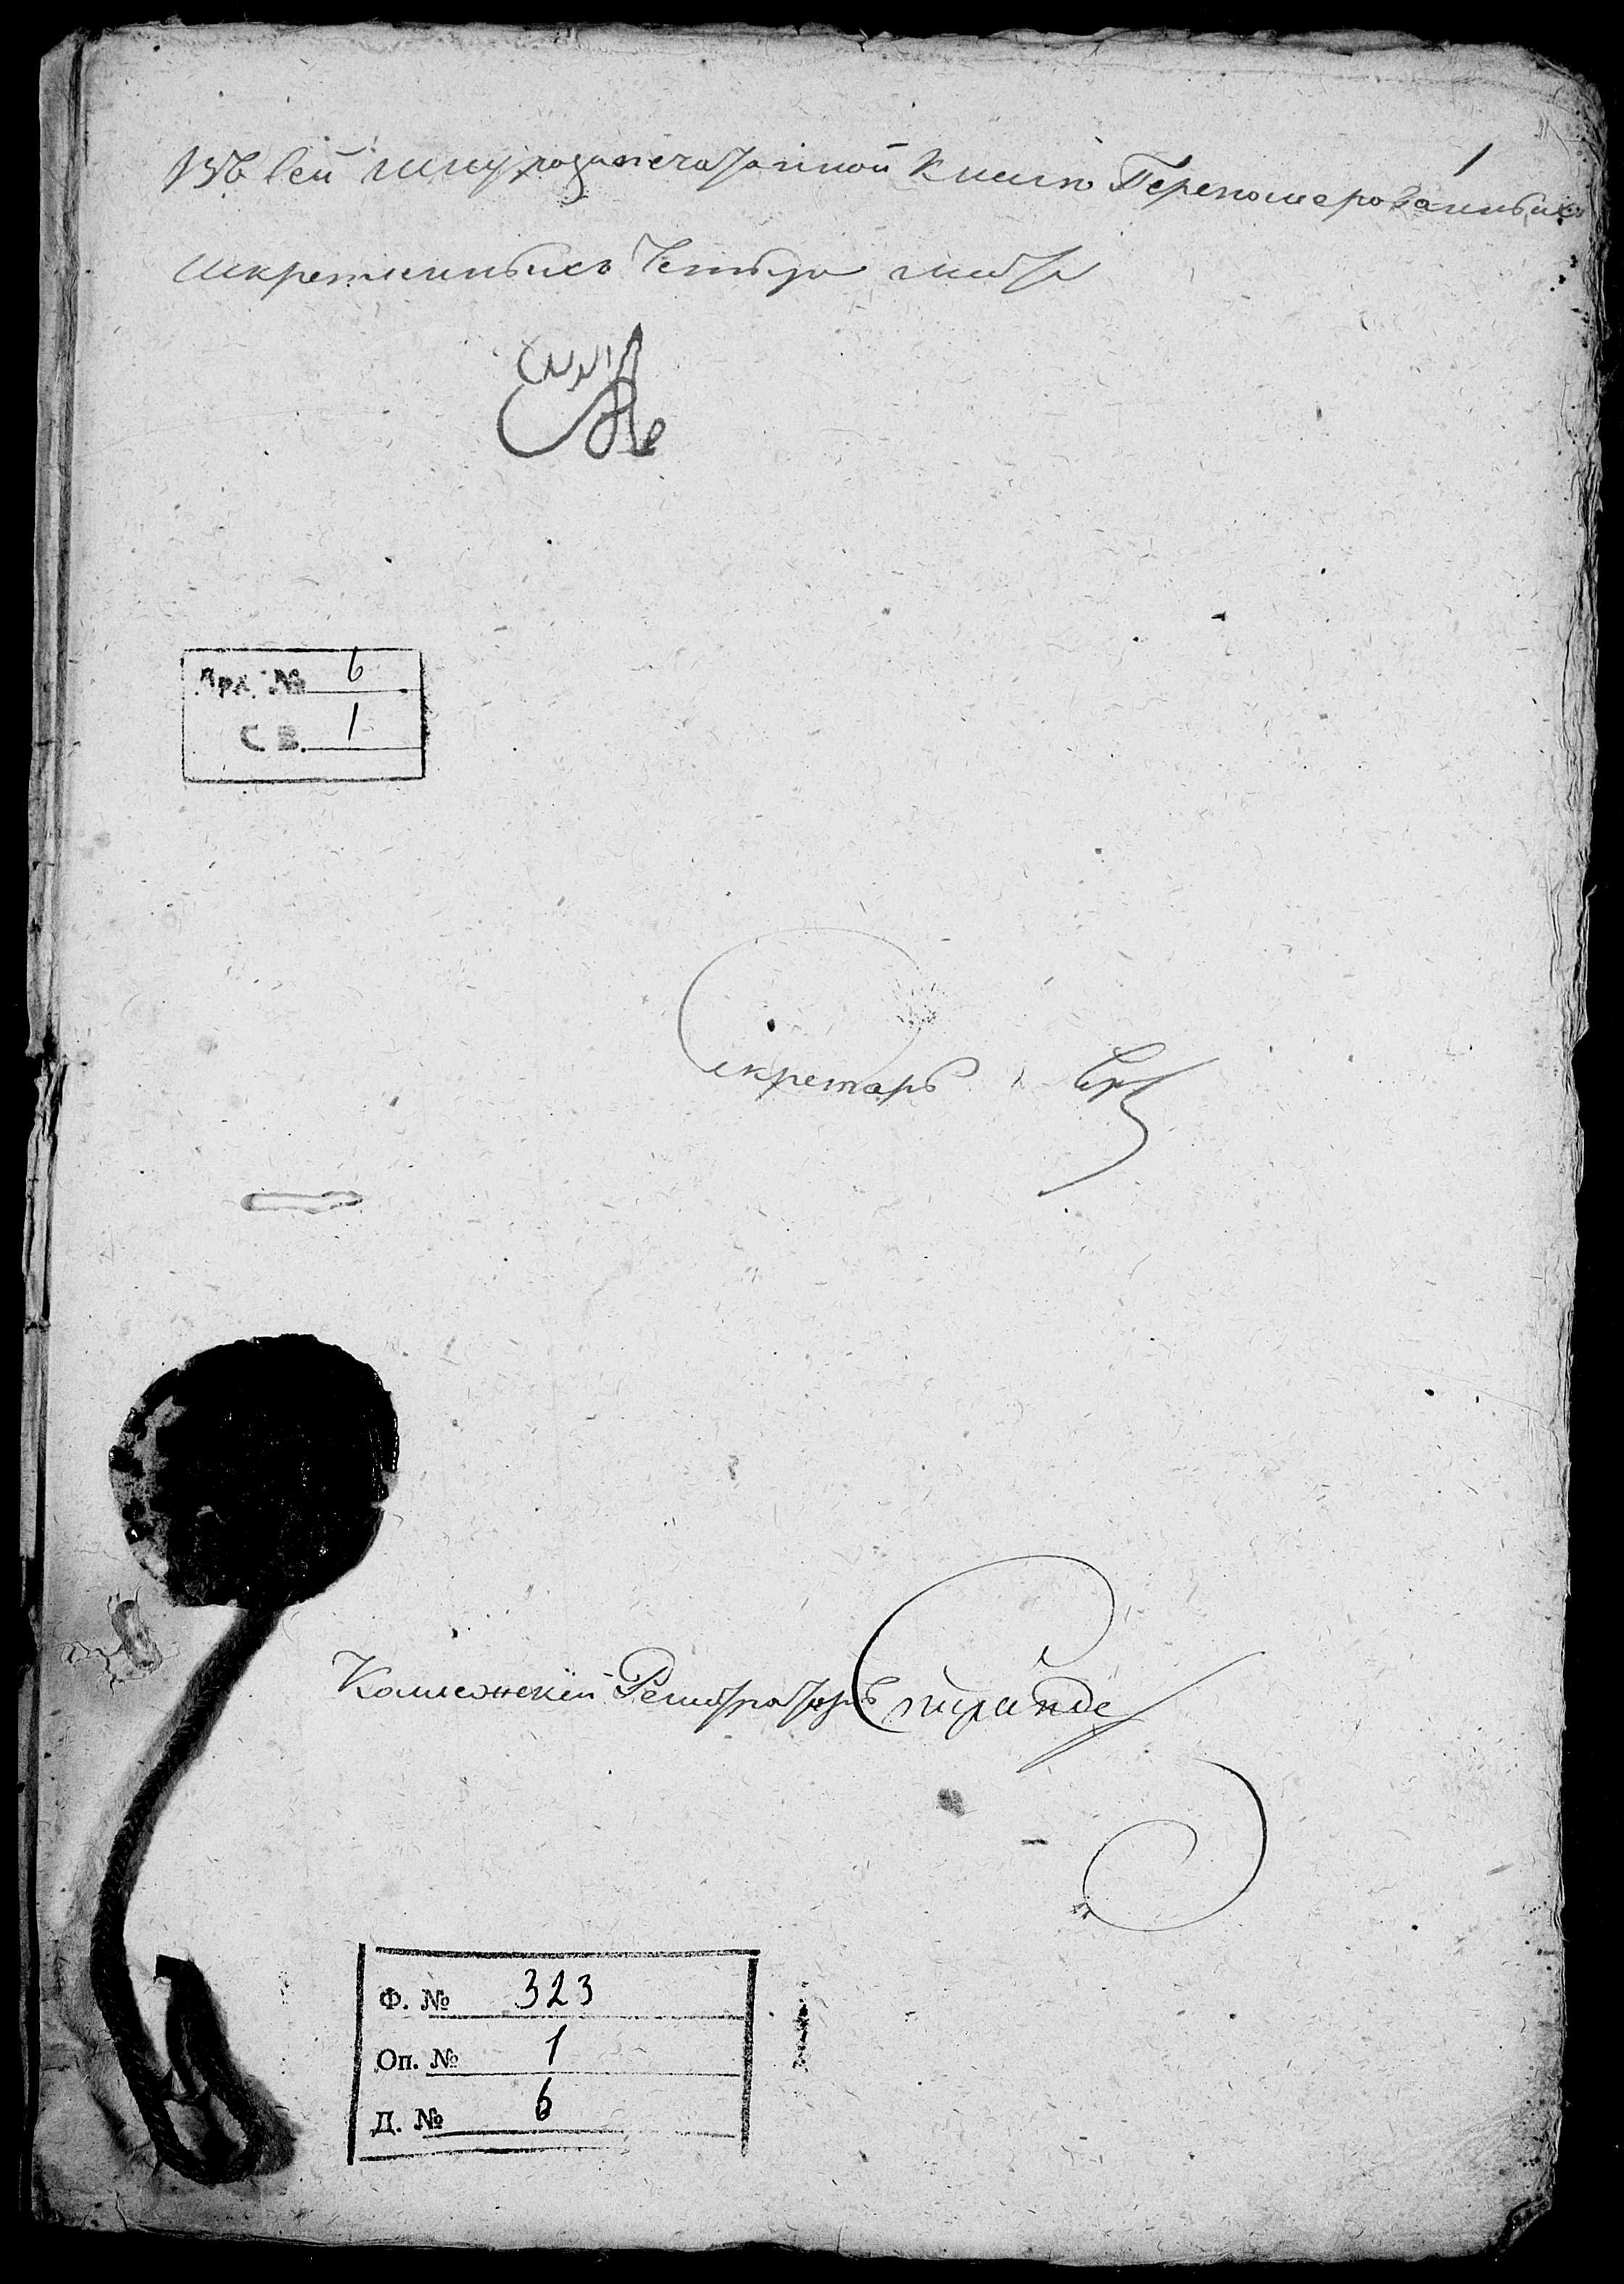 1
Въ сей шнурозапечатанной книги Переномерованныхъ
искрепленныхъ Четыре листа
Арх. № 6
С В. 1
Секретарь
Колежский Регистраторъ
Ф. № 323
Оп. № 1
Д. № 6